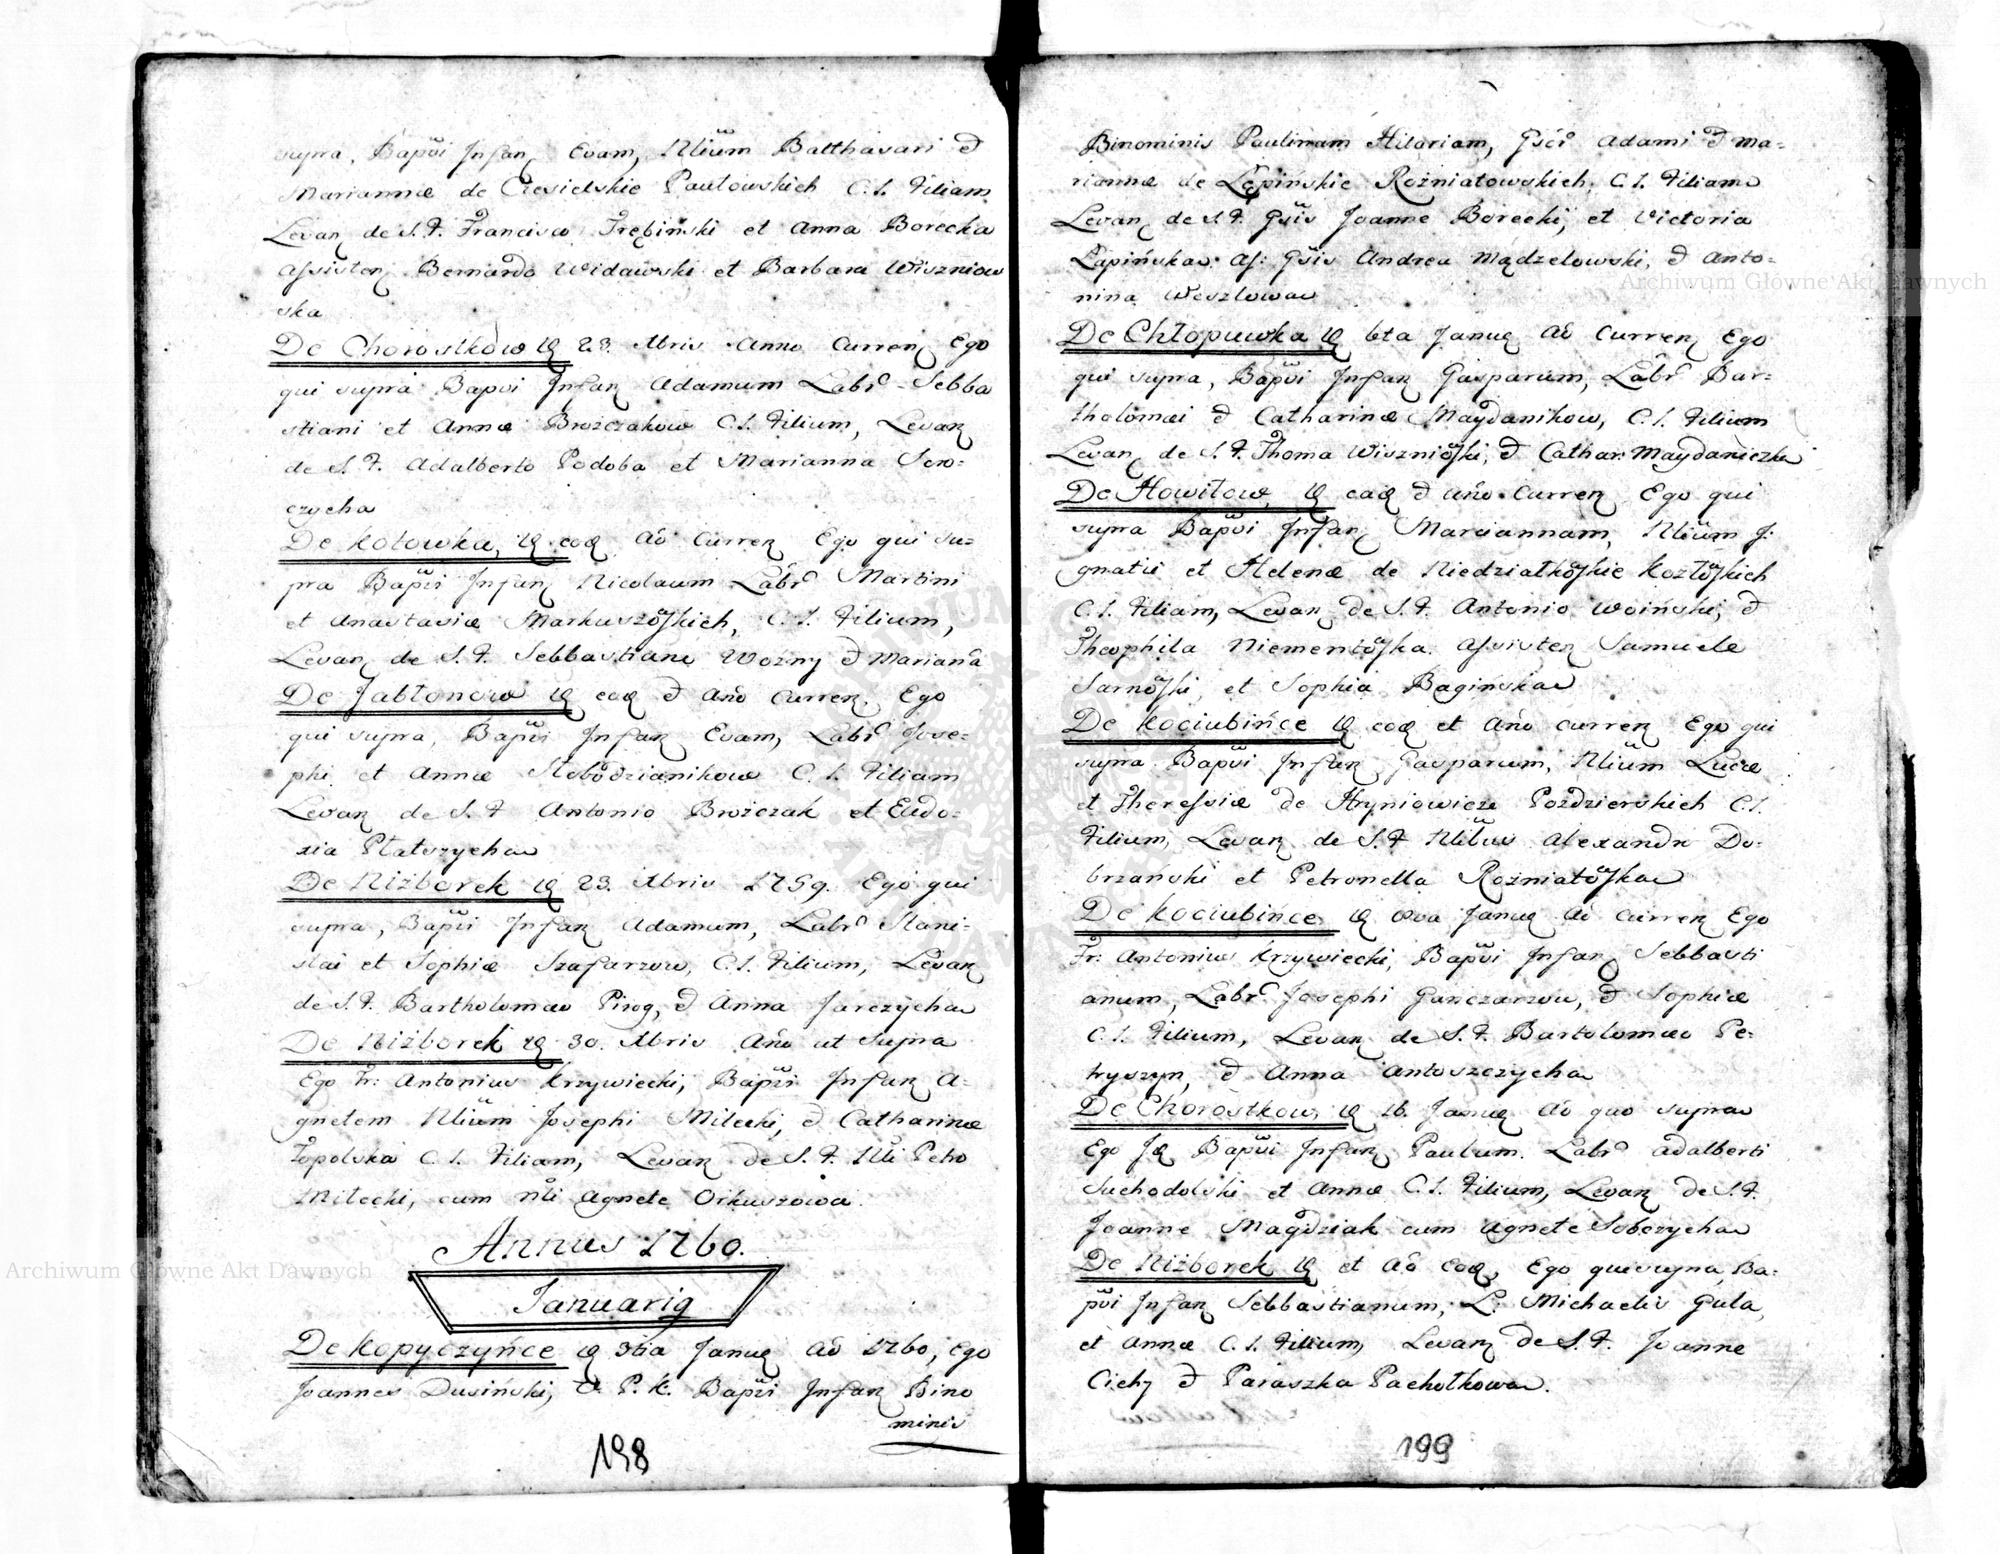 supra, Bapũi Infan Evam, Nlium Balthasari &
Mariannæ de Ciesielskie Pawłowskich C. L. Filiam
Levan de S. F. Francisco Trębiński et Anna Borecka
Assisten Bernardo Widawski et Barbara Wiszniow
ska
De Chorostkow 23. Xbris Anno Curren Ego
qui supra Bapũi Infan Adamum Labr. Sebba
stiani et Annæ Brożczakow C. L. Filium, Levan
de S. F. Adalberto Podoba et Marianna Sero=
czycha
De Kotowka, eoq Aõ Curren Ego qui su=
pra Bapũi Infan Nicolaum Labr. Martini
et Anastasiæ Markuszõskich, C. L. Filium,
Levan de S. F. Sebbastiano Wozny & Marianã
De Jabłonow eoq & Año Curren. Ego
qui supra, Bapũi Infan Evam, Labr. Jose=
phi et Annæ Slobodzianikow C. L. Filiam
Levan de S. F Antonio Brożczak et Eudo=
xia Płatszycha
De Niżborek 23. Xbris 1759. Ego qui
supra, Bapũi Infan Adamum, Labr. Stani=
slai et Sophiæ Szafarzow, C. L. Filium, Levan
de S. F. Bartholomæo Pirog, & Anna Jarczycha
De Niżborek 30. Xbris Año ut Supra
Ego Fr: Antonius Krzywiecki, Bapũi Infan A=
gnetem Nlium Josephi Milecki, & Catharinæ
Topolska C. L. Filiam, Levan de S. F. Nli Petro
Milecki, cum Nli Agnete Orkuszowa.
Annus 1760.
Januariq
De Kopyczyńce 3tia Janu Aõ 1760, Ego
Joannes Dusiński, P. K. Bapũi Infan Bino
minis
198
Binominis Paulinam Hilariam, Gsci Adami & Ma=
riannæ de Łępińskie Rożniatowskich, C. L. Filiam
Levan de S. F. Gsis Joanne Borecki, et Victoria
Łapińska. As: Gsis Andrea Mądzelowski, & Anto=
nina Weszlowa
De Chłopuwka 6ta Janu Aõ Curren Ego
qui supra, Bapũi Infan Gasparum, Labr. Bar=
tholomæi & Catharinæ Maydanikow, C. L. Filium
Levan de S. F. Thoma Wiszniõski, & Cathar: Maydaniczka
De Howiłow, eaq & Año Curren Ego qui
supra Bapũi Infan Mariannam, Nlium I:
gnatii et Helenæ de Niedziałkõskie Kozłõskich
C. L. Filiam, Levan de S. F. Antonio Woiński, &
Theophila Niementõska. Assisten Samuele
Sarnõski, et Sophia Bagińska
De Kociubińce eoq et Año curren Ego qui
supra Bapũi Infan Gasparum, Nlium Lucæ
et Theressiæ de Hryniowicze Pozdzierskich C. L.
Filium, Levan de S. F Nlibus Alexandro Do=
brzański et Petronella Rożniatõska
De Kociubińce 8va Janu Aõ Curren Ego
Fr: Antonius Krzywiecki, Bapũi Infan Sebbasti
anum, Labr. Josephi Ganczarzow, & Sophiæ
C. L. Filium, Levan de S. F. Bartolomæo Pe=
tryszyn, & Anna Antoszczycha
De Chorostkow, 16. Janu Aõ quo supra
Ego Iq Bapũi Infan Paulum. Labr. Adalberti
Suchodolski et Annæ C. L. Filium, Levan de S. F.
Joanne Magdziak cum Agnete Soberycha
De Niżborek et Aõ eoq, Ego qui supra, Ba=
pũi Infan Sebbastianum, L. Michaelis Gula,
et Annæ C. L. Filium, Levan de S. F. Joanne
Cichy & Paraszka Pachołkowa.
199
Archiwum Główne Akt Dawnych
Archiwum Główne Akt Dawnych